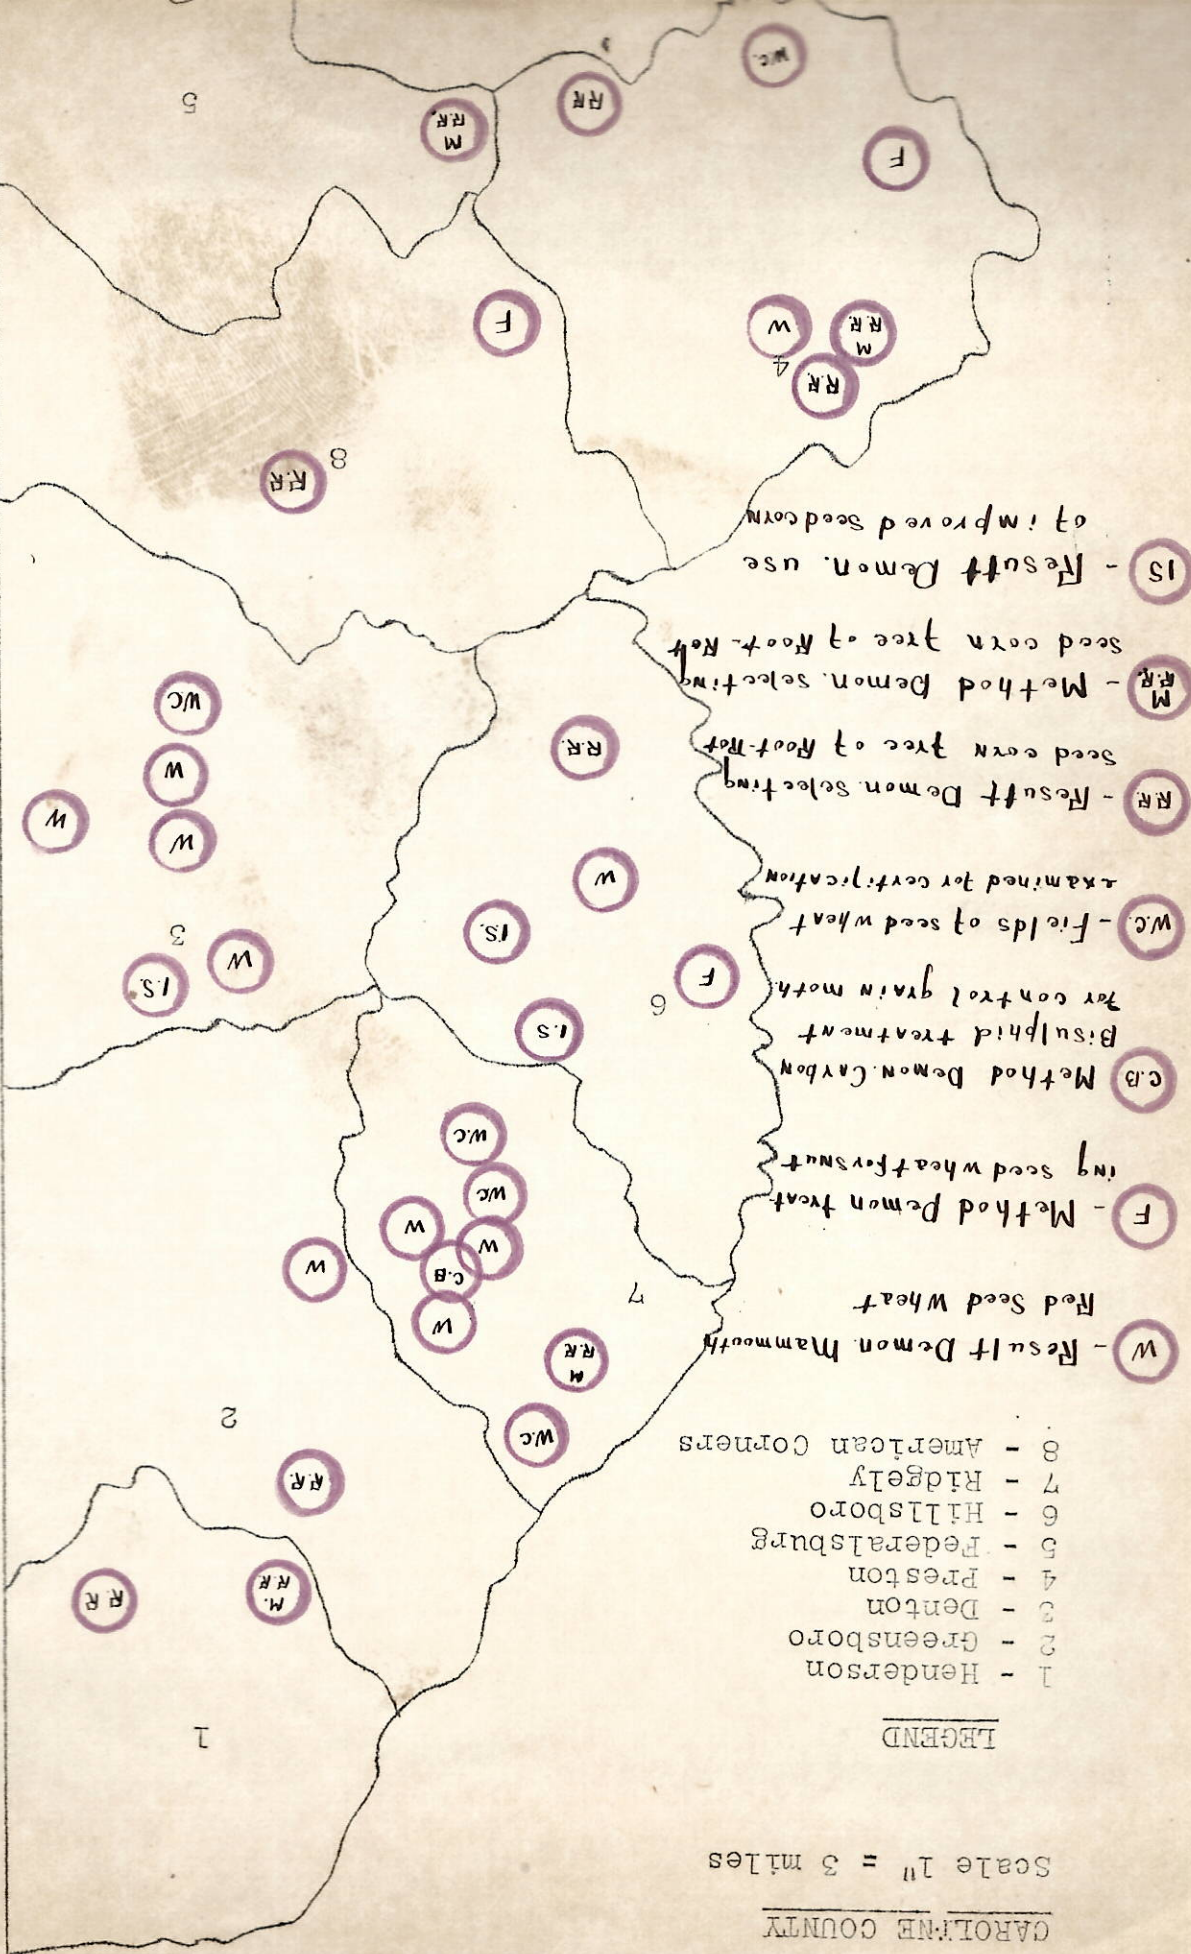 CAROLINE COUNTY
Scale 1" = 3 miles
LEGEND
1 - Henderson
2 - Greensboro
3 - Denton
4 - Preston
5 - Federalsburg
6 - Hillsboro
7 - Ridgely
8 - American Corners
W - Result Demon. Mammouth
Red Seed Wheat
F - Method Demon treat-
ing seed wheat for smut
C.B Method Demon. Carbon
Bisulphid treatment
for control grain moth.
W.C. - Fields of seed wheat
examined for certification
R.R. - Result Demon. selecting
seed corn free of Root-Rot
M
R.R. - Method Demon. selecting
seed corn free of Root-Rot
IS - Result Demon. use
of improved Seed corn
1
M.
R.R
R R
R.R.
W.C
2
M
R.R
W
7
C.B
W
W
W
W.C
W.C.
I.S
6
F
I.S.
W
3
I.S.
W
W
W
W
R.R.
W.C
R.R
8
R.R
4
M
R.R
W
F
F
M
R.R.
RR
5
W.C.